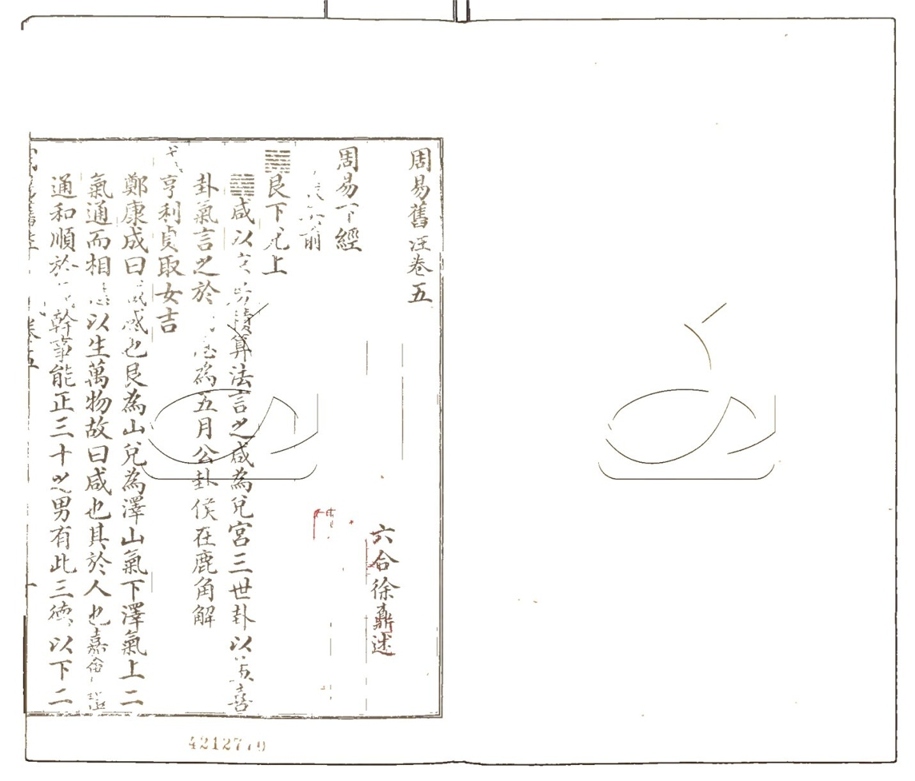 周易舊注卷五
六合徐鼒述
周易下經
前
艮下兌上
咸以算法言之咸為兌宮三世卦以孟喜
卦氣言之於為五月公卦侯在鹿角解
亨利貞取女吉
鄭康成曰咸感也艮為山兌為澤山氣下澤氣上二
氣通而相以生萬物故曰咸也其於人也嘉會
通和順於幹事能正三十之男有此三德以下二
卷五
4212770